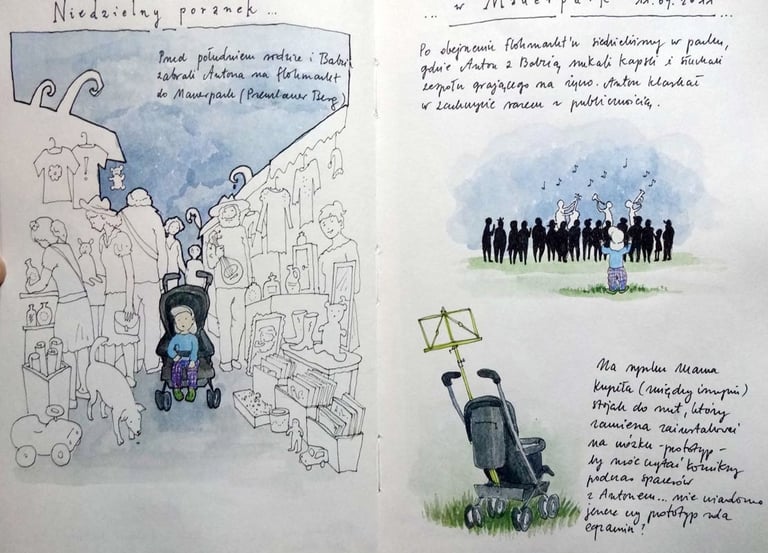 Niedzielny poranek ...
Przed południem rodzice i Babcia
zabrali Antona na flohmarkt
do Mauerpark (Prenzlauer Berg)
... w Mauerpark 11.09.2011 ...
Po obejrzeniu flohmarkt'u siedzieliśmy w parku,
gdzie Anton z Babcią szukali kapsli i słuchali
zespołu grającego na żywo. Anton klaskał
w zachwycie razem z publicznością.
Na rynku Mama
kupiła (między innymi)
stojak do nut, który
zamierza zainstalować
na wózku - prototyp -
by móc czytać komiksy
podczas spacerów
z Antonem... nie wiadomo
jeszcze czy prototyp zda
egzamin?